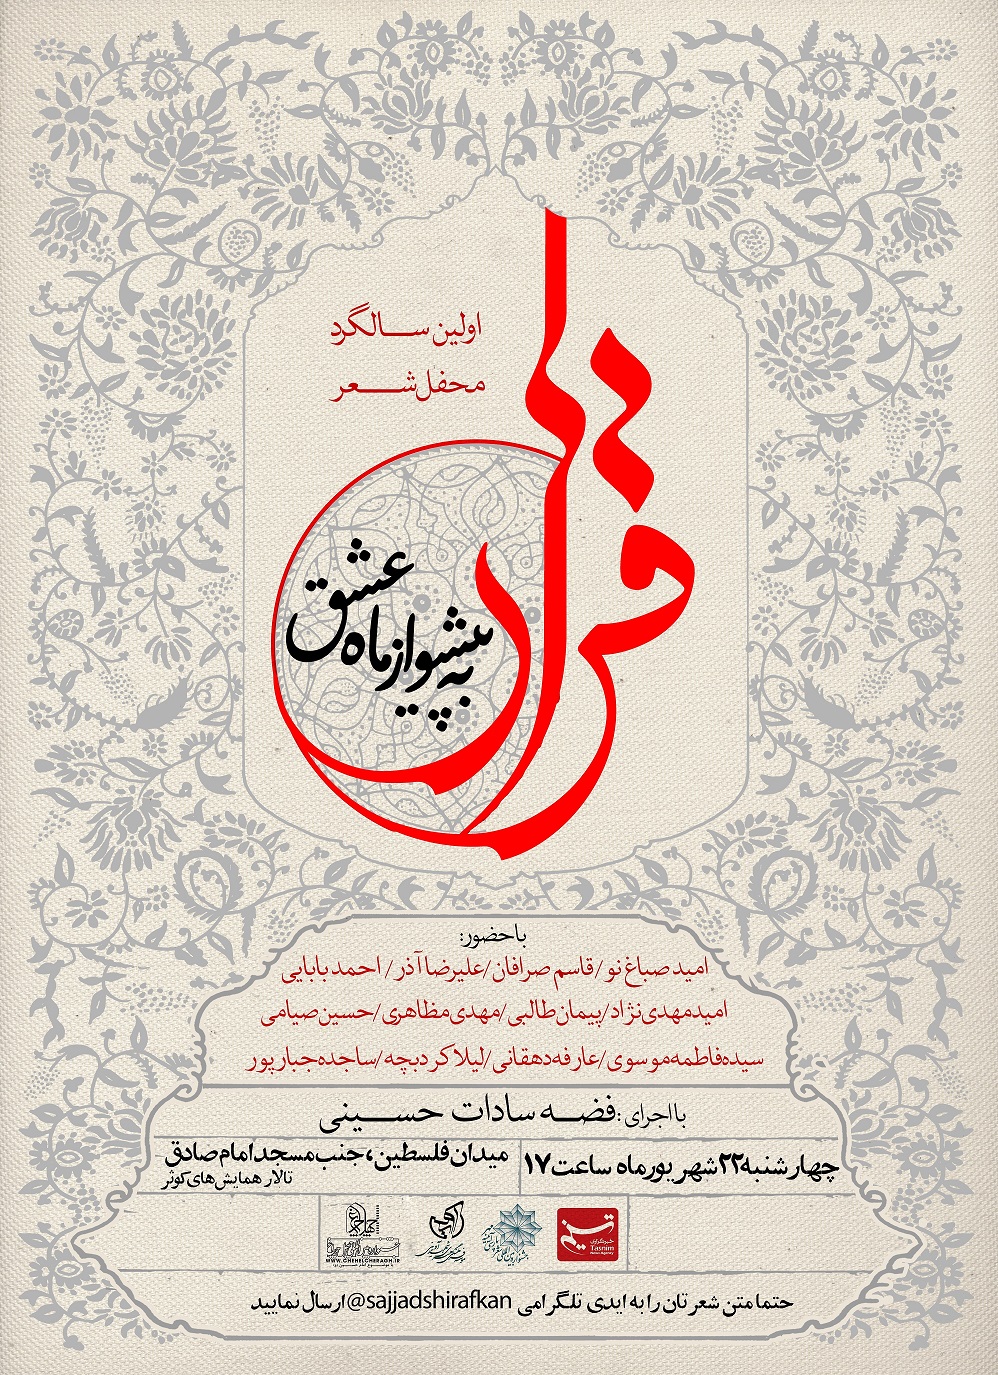 اولین سالگرد
محفل شعر
قرار
به پیشواز ماه عشق
با حضور:
امید صباغ نو/قاسم صرافان/علیرضا آذر/احمد بابایی
امید مهدی نژاد/پیمان طالبی/مهدی مظاهری/حسین صیامی
سیده فاطمه موسوی/عارفه دهقانی/لیلا کردبچه/ساجده جبارپور
با اجرای: فضه سادات حسینی
چهارشنبه ۲۲ شهریور ماه ساعت ۱۷
میدان فلسطین، جنب مسجد امام صادق
تالار همایش‌های کوثر
خبرگزاری
تسنیم
Tasnim
News Agency
چهل چراغ
WWW.CHEHELCHERAGH.IR
حتما متن شعرتان را به ایدی تلگرامی @sajjadshirafkan ارسال نمایید